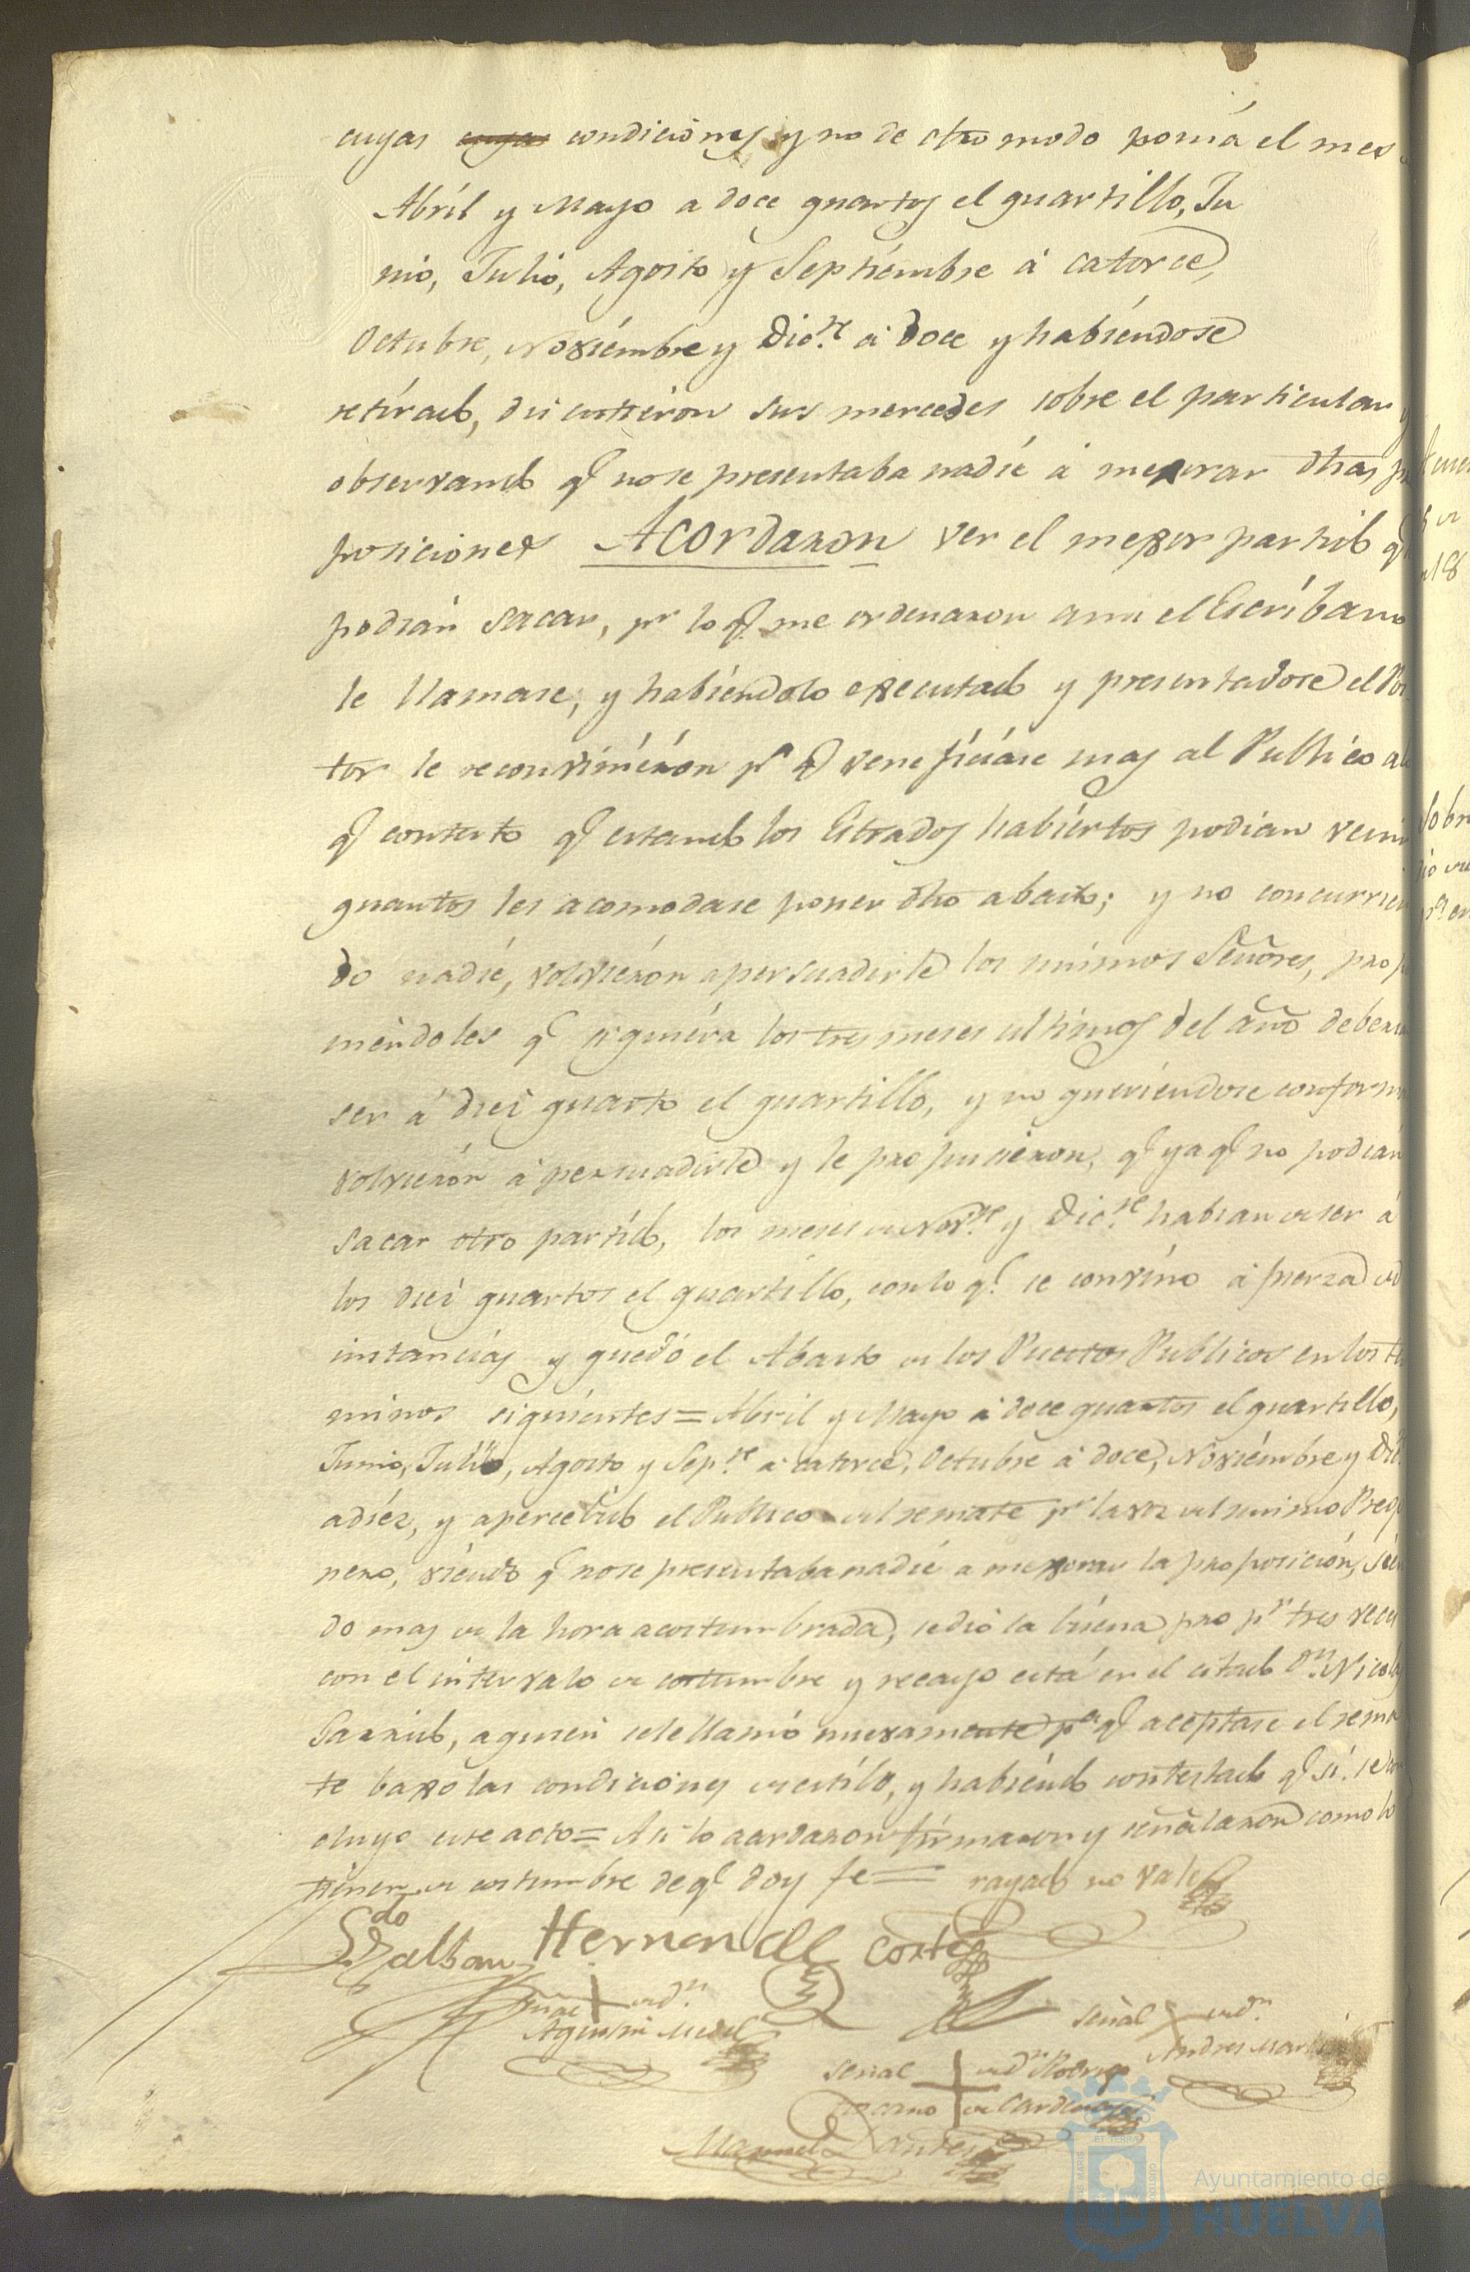 cuyas cuyas condiciones, y no de otro modo ponía el mes
Abríl y Mayo a doce quartos el quartillo, Ju
nio, Julio, Agosto y Septiémbre á catorce,
Octubre, Noviémbre y Dic.re á doce y habiéndose
retírado, discutieron sus mercedes sobre el particular y
observando q.e no se presentaba nadíe á mejorar dhas pro
posiciones Acordaron ver el mejor partido q.e
podian sacar, pr lo q.e me ordenaron a mi el Escríbano
le llamase, y habiéndolo executado y presentadose el Pos
tor le reconviniéron pa q.e veneficiáse mas al Publico a lo
q.e contexto q.e estando los Estrados habiertos podian venir
quantos les acomodase poner dho abasto; y no concurrien
do nadíe, volvierón a persuadirle los mismos Señores, propo
niéndoles q.e siquiéra los tres meses ultimos del año deberan
ser á diez quarto el quartillo, y no queriéndose conformar
volvierón á persuadirle y le propusieron, q.e ya q.e no podian
sacar otro partido, los meses de Nov.re y Dic.re habian de ser á
los diez quartos el quartillo, con lo q.e se convíno á fuerza de
instancias y quedó el Abasto de los Puestos Publicos en los ter
minos siguientes = Abril y Mayo á doce quartos el quartillo,
Junio, Julio, Agosto y Sep.re á catorce, Octubre á doce, Noviémbre y Dic
a diez, y apercebido el Publico del remate pr la voz del mismo Prego
nero, viendo q.e no se presentaba nadíe a mejorar la proposición, sien
do mas de la hora acostumbrada, se dio la buena pro pr tres veces
con el intervalo de costumbre y recayo está en el citado Dn. Nicolas
Garrido, a quien se le llamó nuevamente pa q.e aceptase el rema
te baxo las condiciones de estílo, y habiendo contestado q.e sí se con
cluyo este acto = Asi lo acordaron firmaron y señalaron como lo
tienen de costumbre de q.e doy fe = rayado no vale
Ldo Galban Hernandez Cortes
Señal de dn.
Agustin Medel
Señal de dn.
Andres Marti
Señal de dn Rodrigo
de Cardenas
Manuel
Ayuntamiento de
HUELVA